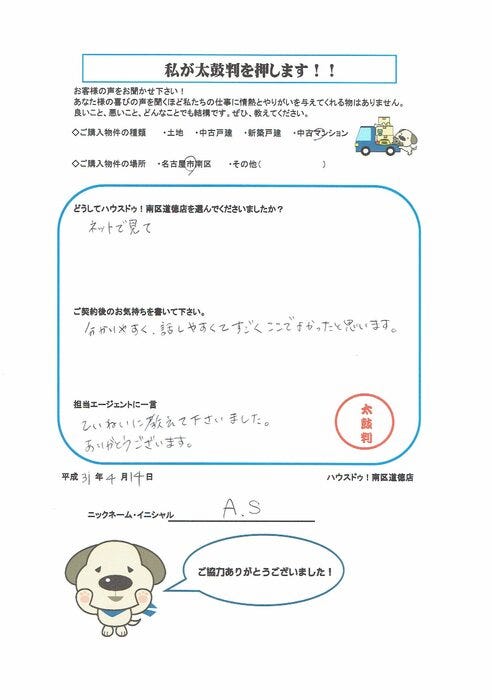 私が太鼓判を押します！！
お客様の声をお聞かせ下さい！
あなた様の喜びの声を聞くほど私たちの仕事に情熱とやりがいを与えてくれる物はありません。
良いこと、悪いこと、どんなことでも結構です。ぜひ、教えてください。
◇ご購入物件の種類 ・土地 ・中古戸建 ・新築戸建 ・中古マンション
◇ご購入物件の場所 ・名古屋市南区 ・その他( )
どうしてハウスドゥ！南区道徳店を選んでくださいましたか？
ネットで見て
ご契約後のお気持ちを書いて下さい。
分かりやすく、話しやすくてすごくここでよかったと思います。
担当エージェントに一言
ていねいに教えて下さいました。
ありがとうございます。
太鼓判
平成 31 年 4 月 14 日 ハウスドゥ！南区道徳店
ニックネーム・イニシャル A.S
ご協力ありがとうございました！